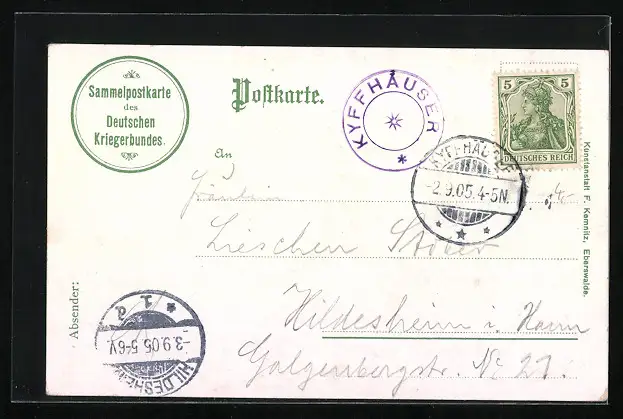 Sammelpostkarte
des
Deutschen
Kriegerbundes.
Postkarte.
KYFFHÄUSER
5 5
DEUTSCHES REICH
KYFFHÄUSER
-2.9.05.4-5N.
An
Fräulein
Lieschen
Hildesheim i. Hann
Galgenbergstr. No 21.
Absender:
HILDESHEIM
-3.9.05.5-6V.
* 1 d
Kunstanstalt F. Kemnitz, Eberswalde.